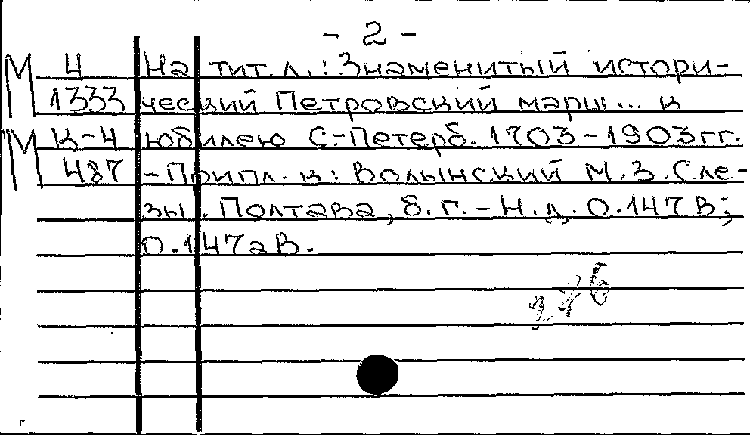 - 2 -
М 4 На тит. л.: Знаменитый истори-
1333 ческий Петровский марш... к
М К-4 юбилею С.-Петерб. 1703-1903 гг.
487 - Припл. к: Волынский М. В. Сле-
зы. Полтава, б. г. - Н. д. О.147 В;
О.147аВ.